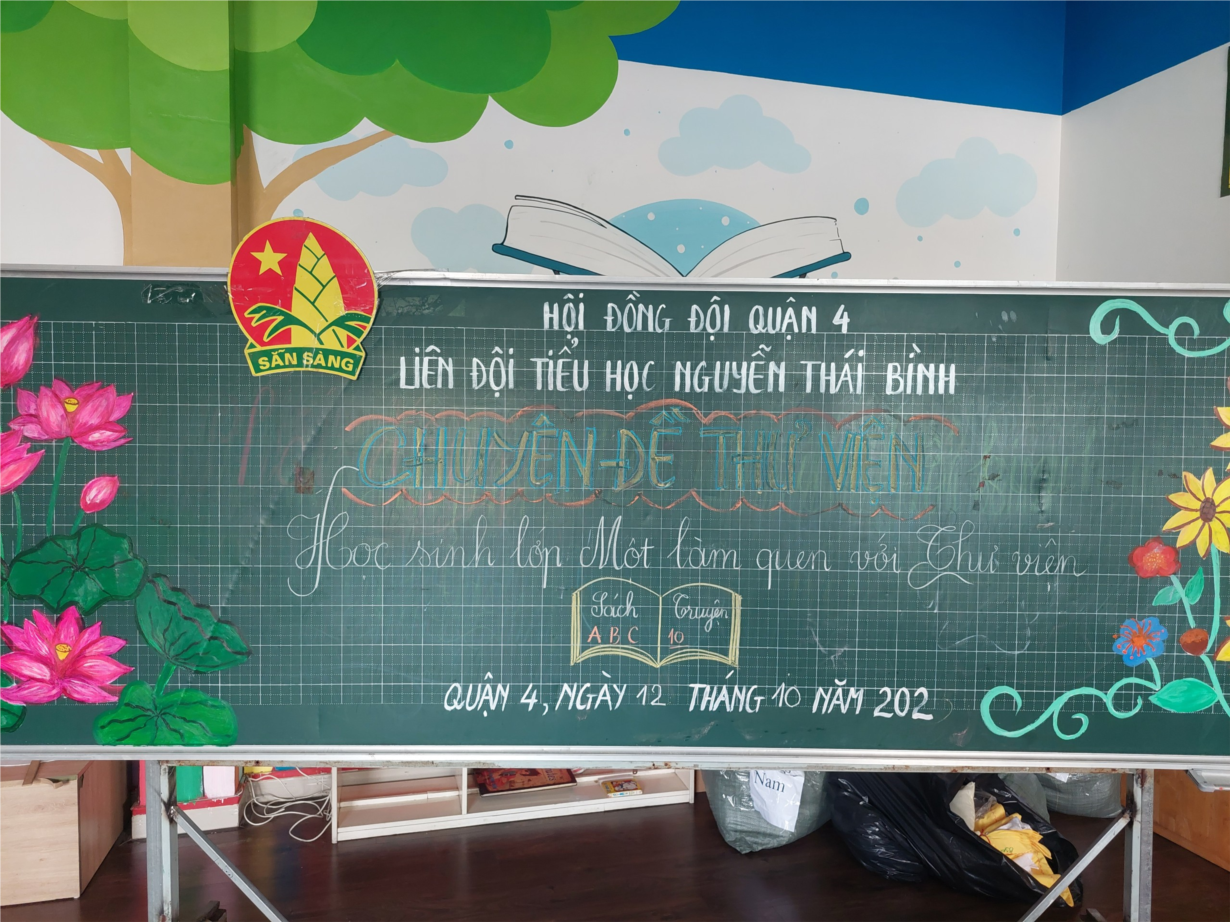 HỘI ĐỒNG ĐỘI QUẬN 4
SẴN SÀNG
LIÊN ĐỘI TIỂU HỌC NGUYỄN THÁI BÌNH
CHUYÊN ĐỀ THƯ VIỆN
Học sinh lớp Một làm quen với Thư viện
Sách Truyện
A B C 10
QUẬN 4, NGÀY 12 THÁNG 10 NĂM 202
Nam